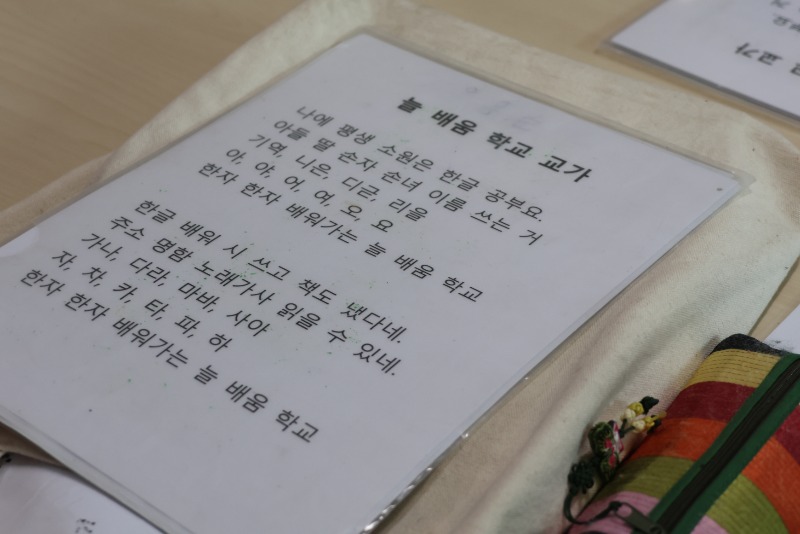 늘 배움 학교 교가
나에 평생 소원은 한글 공부요.
아들 딸 손자 손녀 이름 쓰는 거
기역, 니은, 디귿, 리을
아, 야, 어, 여, 오, 요
한자 한자 배워가는 늘 배움 학교
한글 배워 시 쓰고 책도 냈다네.
주소 명함 노래가사 읽을 수 있네.
가나, 다라, 마바, 사아
자, 차, 카, 타, 파, 하
한자 한자 배워가는 늘 배움 학교
교가